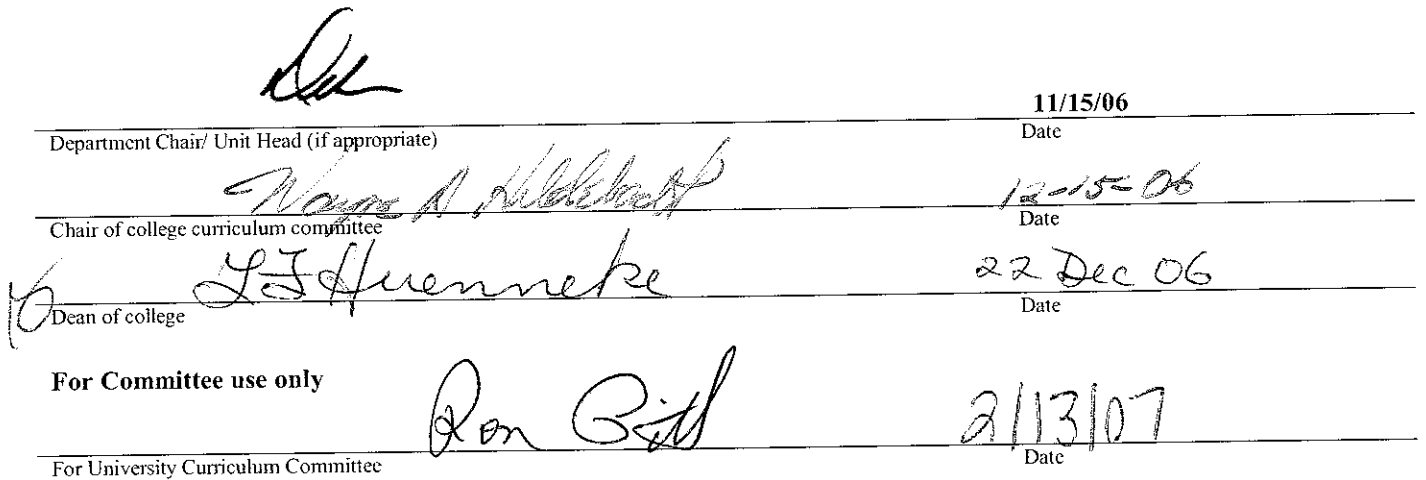 11/15/06
Department Chair/ Unit Head (if appropriate) Date
Wayne A Hildebrandt 12-15-06
Chair of college curriculum committee Date
LF Huenneke 22 Dec 06
Dean of college Date
For Committee use only
Ron 2/13/07
For University Curriculum Committee Date